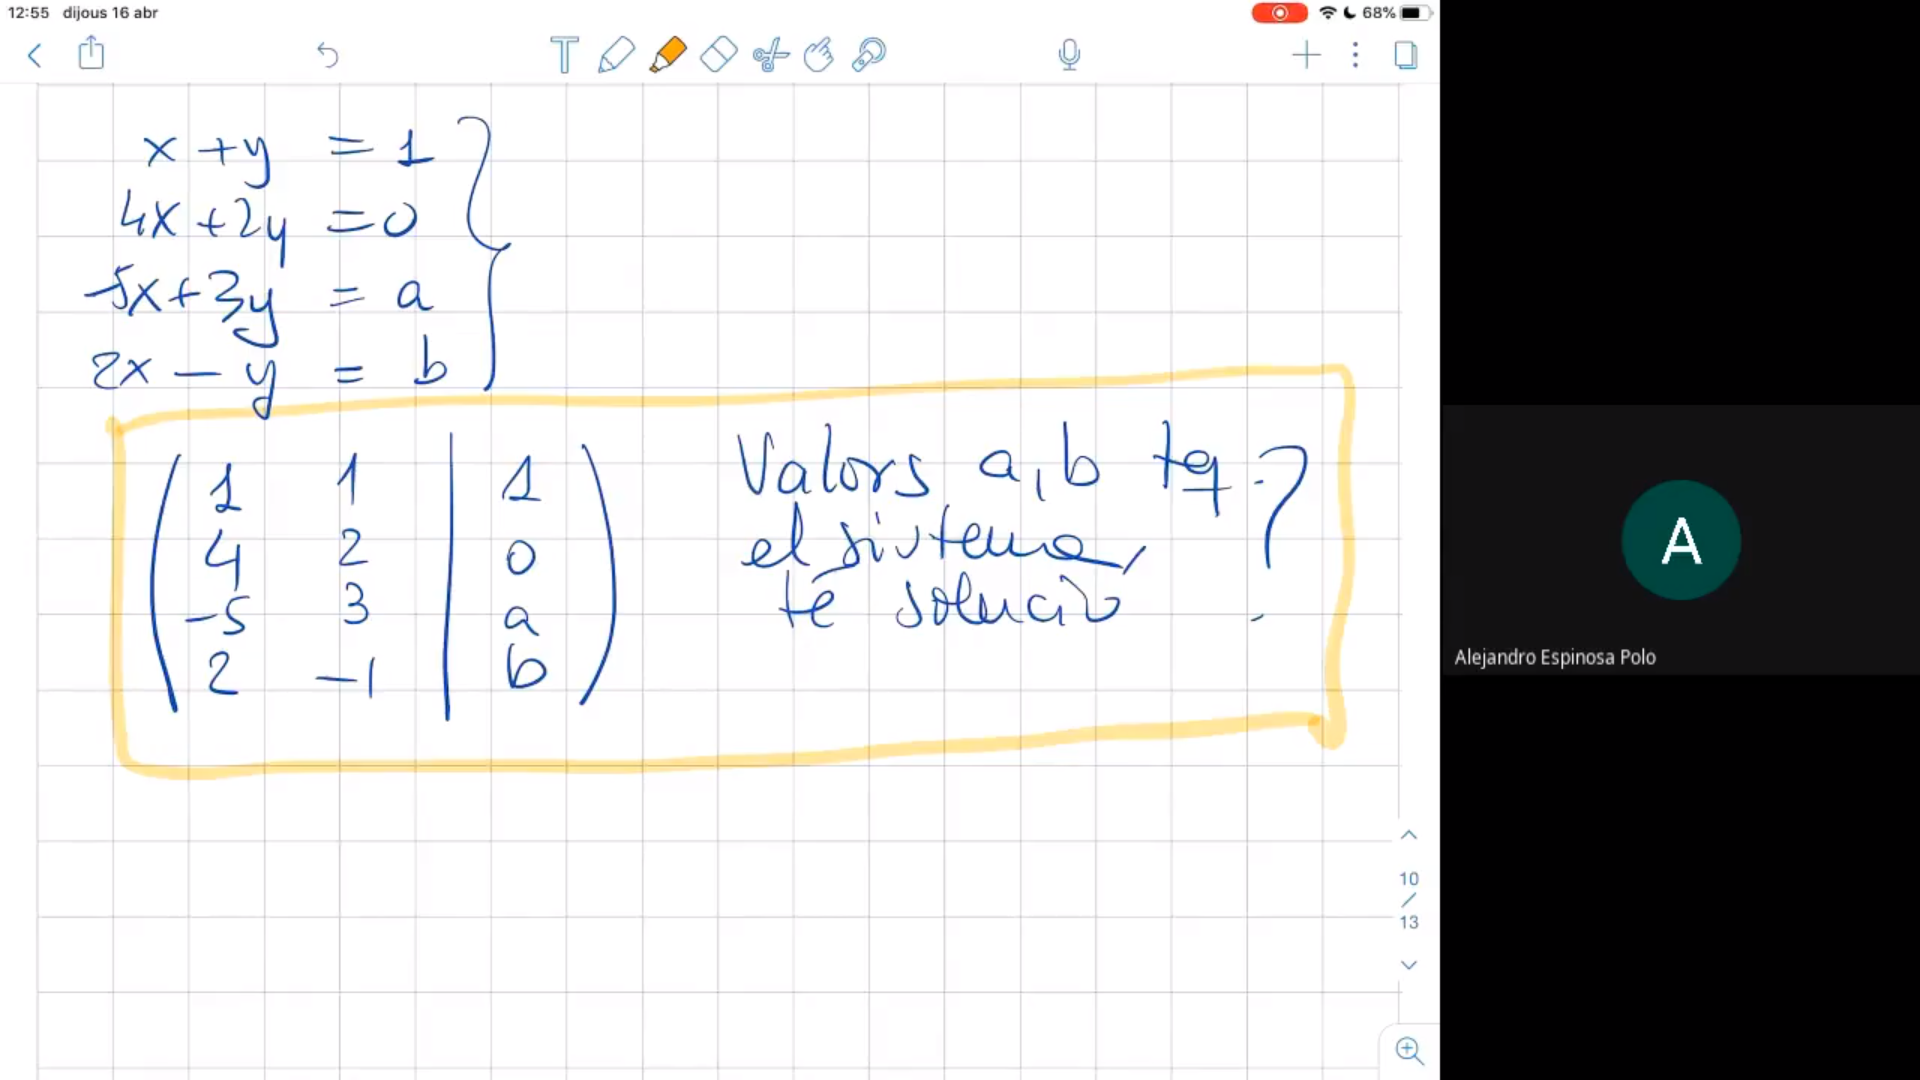 12:55 dijous 16 abr
68%
x + y = 1
4x + 2y = 0
-5x + 3y = a
2x - y = b
1 1 | 1
4 2 | 0
-5 3 | a
2 -1 | b
Valors a, b tq
el sistema
té solució ?
10
/
13
A
Alejandro Espinosa Polo